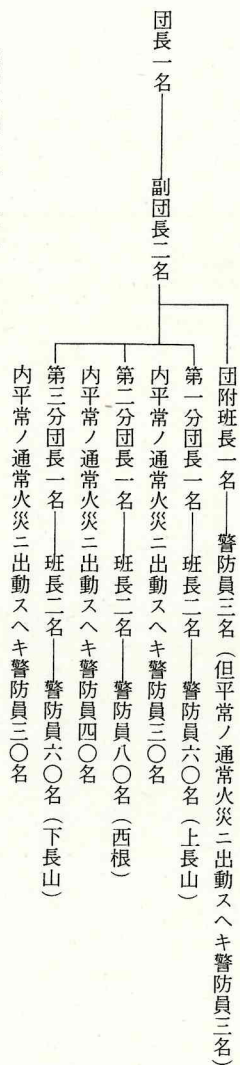 団長一名――副団長二名
団附班長一名――警防員三名（但平常ノ通常火災ニ出動スヘキ警防員三名）
第一分団長一名――班長二名――警防員六〇名（上長山）
内平常ノ通常火災ニ出動スヘキ警防員三〇名
第二分団長一名――班長二名――警防員八〇名（西根）
内平常ノ通常火災ニ出動スヘキ警防員四〇名
第三分団長一名――班長二名――警防員六〇名（下長山）
内平常ノ通常火災ニ出動スヘキ警防員三〇名